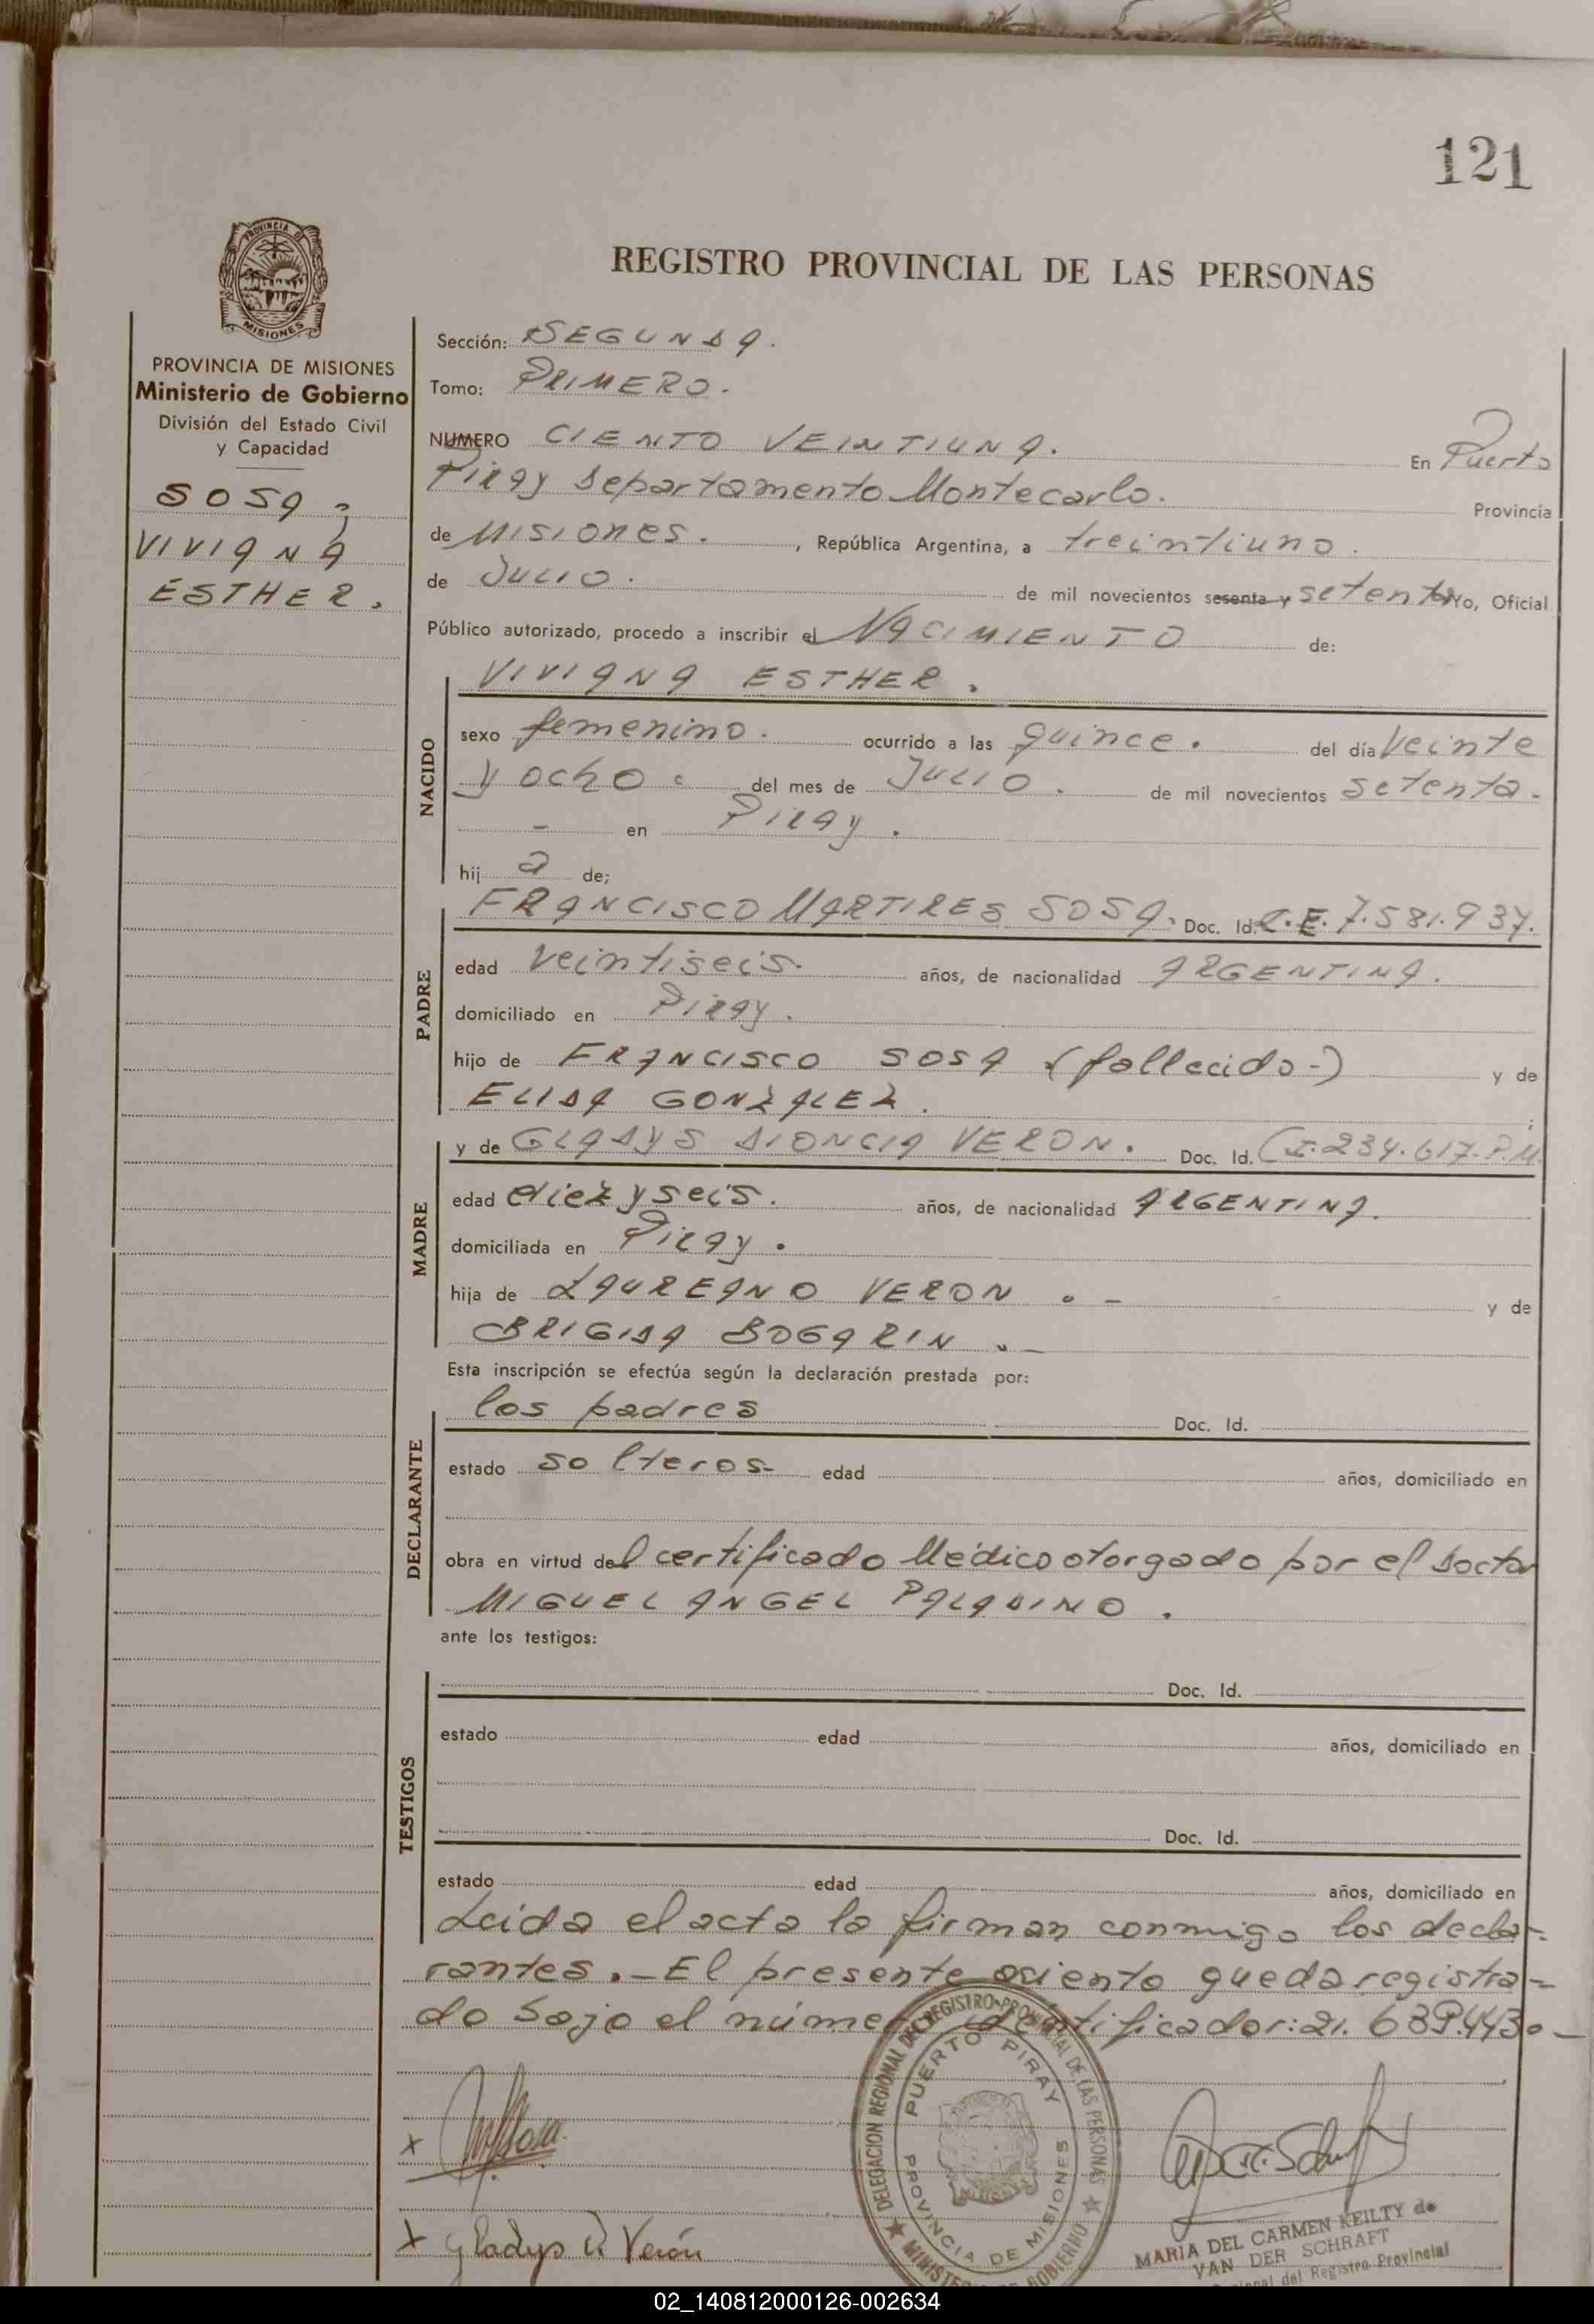 121
REGISTRO PROVINCIAL DE LAS PERSONAS
PROVINCIA DE MISIONES
MISIONES
PROVINCIA DE MISIONES
Ministerio de Gobierno
División del Estado Civil
y Capacidad
SOSA,
VIVIANA
ESTHER.
Sección: SEGUNDA.
Tomo: PRIMERO.
NUMERO CIENTO VEINTIUNA. En Puerto
Piray departamento Montecarlo. Provincia
de MISIONES. , República Argentina, a treintiuno.
de JULIO. de mil novecientos sesenta y setenta Yo, Oficial
Público autorizado, procedo a inscribir el NACIMIENTO de:
VIVIANA ESTHER.
NACIDO
sexo femenino. ocurrido a las quince. del día veinte
y ocho. del mes de JULIO. de mil novecientos setenta.
- en Piray.
hij a de;
PADRE
FRANCISCO MARTIRES SOSA. Doc. Id. C.E. 7.581.937.
edad veintiseis. años, de nacionalidad ARGENTINA.
domiciliado en Piray.
hijo de FRANCISCO SOSA (fallecido-) y de
ELIDA GONZALEZ. ;
MADRE
y de GLADYS DIONCIA VERON. Doc. Id. C.I. 234.617. P.M.
edad diez y seis. años, de nacionalidad ARGENTINA.
domiciliada en Piray.
hija de LAUREANO VERON . - y de
BRIGIDA BOGARIN . -
Esta inscripción se efectúa según la declaración prestada por:
DECLARANTE
los padres Doc. Id.
estado solteros- edad años, domiciliado en
obra en virtud del certificado Médico otorgado por el Doctor
MIGUEL ANGEL PALADINO.
ante los testigos:
TESTIGOS
Doc. Id.
estado edad años, domiciliado en
Doc. Id.
estado edad años, domiciliado en
Leida el acta la firman conmigo los decla-
rantes.- El presente asiento queda registra-
do bajo el número identificador: 21.639.443.-
DELEGACION REGIONAL DEL REGISTRO PROVINCIAL DE LAS PERSONAS
PUERTO PIRAY
PROVINCIA DE MISIONES
MINISTERIO DE GOBIERNO
x
x Gladys D Verón
MARIA DEL CARMEN KEILTY de
VAN DER SCHRAFT
del Registro Provincial
02_140812000126-002634